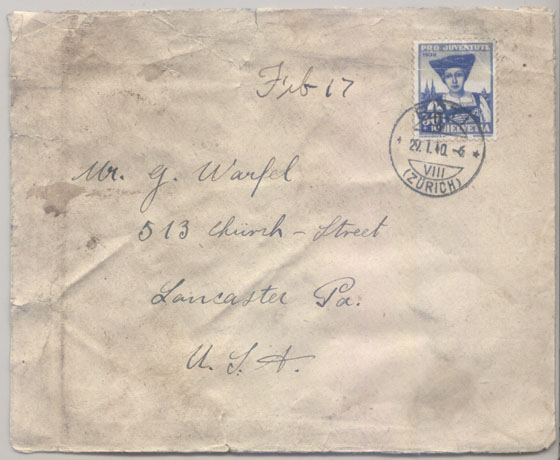 PRO JUVENTUTE
Feb 17
30
HELVETIA
29.I.40.-6
VIII
(ZÜRICH)
Mr. G. Warfel
513 Chürch-Street
Lancaster Pa.
U.S.A.